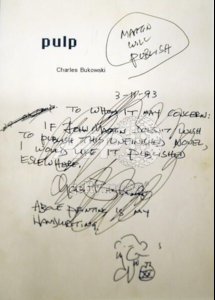 pulp
MARTIN
WILL
PUBLISH
Charles Bukowski
93
TO WHOM IT MAY CONCERN:
IF JOHN MARTIN DOESN'T WISH
TO PUBLISH THIS UNFINISHED NOVEL,
I WOULD LIKE IT PUBLISHED
ESLEWHERE.
ABOVE PRINTING IS MY
HANDWRITING.